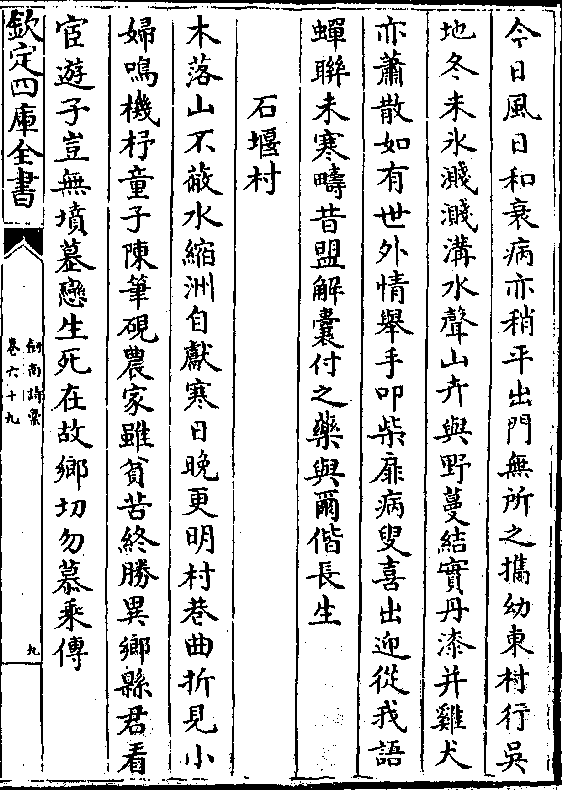 今日風日和衰病亦稍平出門無所之攜幼東村行吳
地冬未氷濺濺溝水聲山卉與野蔓結實丹漆并雞犬
亦蕭散如有世外情舉手叩柴扉病叟喜出迎從我語
蟬聯未寒疇昔盟解囊付之藥與爾偕長生
石堰村
木落山不蔽水縮洲自獻寒日晚更明村巷曲折見小
婦鳴機杼童子陳筆硯農家雖貧苦終勝異鄉縣君看
宦遊子豈無墳墓戀生死在故鄉切勿慕乘傳
欽定四庫全書
劍南詩稾
卷六十九
九